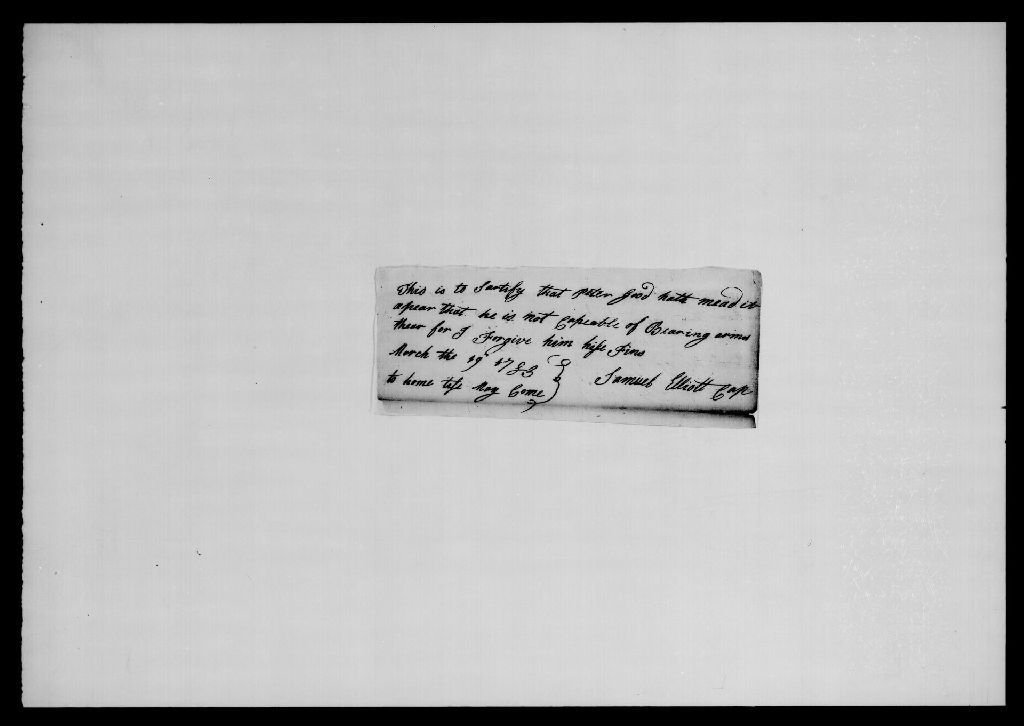 This is to Sartefy that Peter Good hath mead it
apear that he is not Capeable of Bearing arms
thear for I Forgive him hise Fins
March the 19 1783
to home thfs May Come
Samuel Elliott Cap